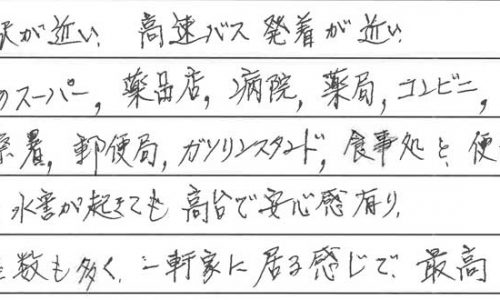 が近い、高速バス発着が近い
のスーパー, 薬品店, 病院, 薬局, コンビニ,
署, 郵便局, ガソリンスタンド, 食事処と、便
水害が起きても高台で安心感有り.
数も多く、一軒家に居る感じで、最高